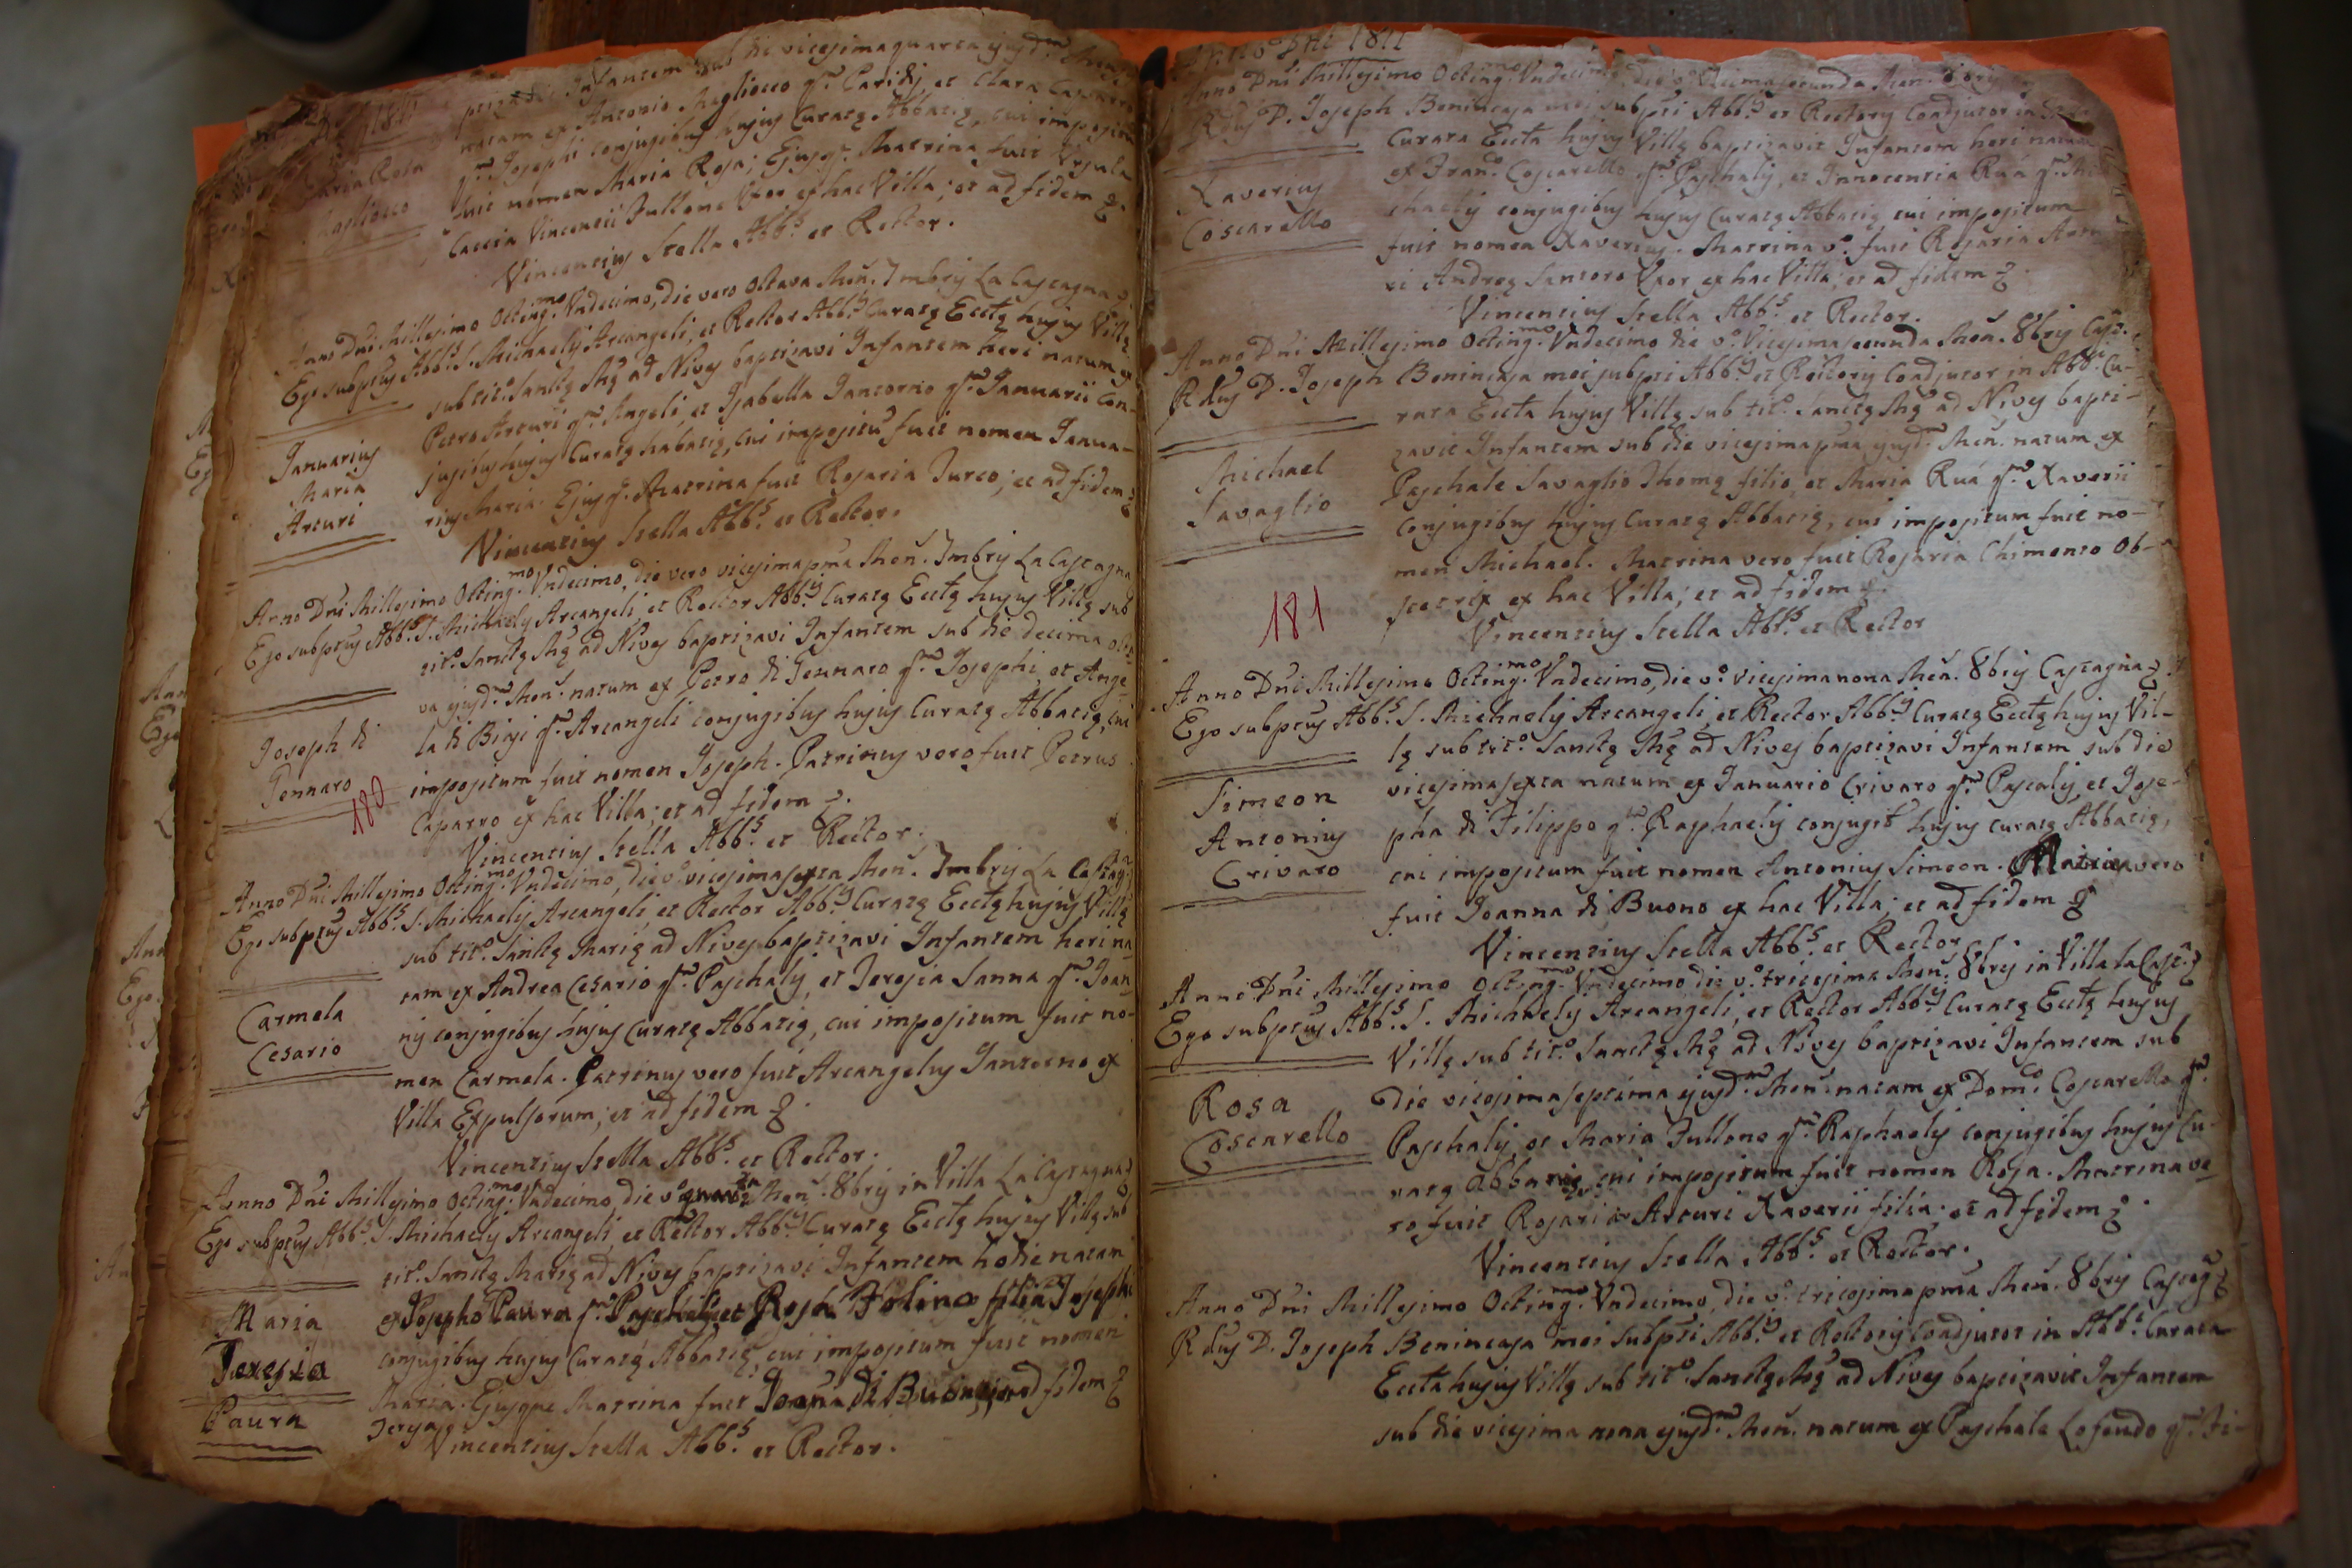 1811
ptizavi Infantem sub die vicesimaquarta ejusd.m
natam ex Antonio Magliocco q.m Paridis, et Clara Caparro
q.m Josephi conjugibus hujus Curatę Abbatię, cui impositum
fuit nomen Maria Rosa; Ejusq.e Matrina fuit Ursula
Caccia Vincentii Fullone Uxor ex hac Villa; et ad fidem &.
Vincentius Stella Abb.s et Rector.
Maria Rosa
Magliocco
Anno Dni Millesimo Octing.mo Undecimo, die vero Octava Men. 7mbris La Castagna &.
Ego subptus Abb.s S. Michaelis Arcangeli, et Rector Abb.is Curatę Ecctę hujus Villę
sub tit.o Sanctę Mę ad Nives baptizavi Infantem heri natum ex
Petro Arturi q.m Angeli, et Isabella Iantorno q.m Januarii con-
jugibus hujus Curatę habatię, cui impositu fuit nomen Janua-
rius Maria. Ejusq.e Matrina fuit Rosaria Turco; et ad fidem &
Vincentius Stella Abb.s et Rector.
Januarius
Maria
Arturi
Anno Dni Millesimo Octing.mo Undecimo, die vero vicesimapma Men. 7mbris La Castagna
Ego subptus Abb.s S. Michaelis Arcangeli et Rector Abb.is Curatę Ecctę hujus Villę sub
tit.o Sanctę Mę ad Nives baptizavi Infantem sub die decima octa-
va ejusd.m Men. natum ex Petro di Gennaro q.m Josephi, et Ange-
la di Biasi q.m Arcangeli conjugibus hujus Curatę Abbatię, cui
impositum fuit nomen Joseph. Patrinus vero fuit Petrus
Caparro ex hac Villa; et ad fidem &.
Vincentius Stella Abb.s et Rector.
Joseph di
Gennaro
180
Anno Dni Millesimo Octing.mo Undecimo, die v.o vicesimasexta Men. 7mbris La Castag.
Ego subptus Abb.s S. Michaelis Arcangeli et Rector Abb.is Curatę Ecctę hujus Villę
sub tit.o Sanctę Marię ad Nives baptizavi Infantem heri na-
tam ex Andrea Cesario q.m Paschalis, et Teresia Sanna q.m Joan-
nis conjugibus hujus Curatę Abbatię, cui impositum fuit no-
men Carmela. Patrinus vero fuit Arcangelus Iantorno ex
Villa Expulsorum; et ad fidem &.
Vincentius Stella Abb.s et Rector.
Carmela
Cesario
Anno Dni Millesimo Octing.mo Undecimo, die v.o Men. 8bris in Villa La Castagna &
Ego subptus Abb.s S. Michaelis Arcangeli, et Rector Abb.is Curatę Ecctę hujus Villę sub
tit.o Sanctę Marię ad Nives baptizavi Infantem hodie natam
ex Josepho Paura q.m Paschalis et Rosa Folino filia Josephi
conjugibus hujus Curatę Abbatię, cui impositum fuit nomen
Maria. Ejusque Matrina fuit Joana di Buono; ad fidem &
Teresia
Vincentius Stella Abb.s et Rector.
Maria
Teresia
Paura
Anno Dni 1811
Anno Dni Millesimo Octing.mo Undecimo, die v.o Decimasecunda Men. 8bris
Rdus D. Joseph Benincasa mei subpti Abb.is et Rectoris Coadjutor in
Curata Eccta hujus Villę baptizavit Infantem heri natum
ex Fran.o Coscarello q.m Paschalis, et Innocentia Ruá q.m Mi-
chaelis conjugibus hujus Curatę Abbatię cui impositum
fuit nomen Xaverius. Matrina v.o fuit Rosaria
Andreę Santoro Uxor ex hac Villa; et ad fidem &.
Vincentius Stella Abb.s et Rector.
Xaverius
Coscarello
Anno Dni Millesimo Octing.mo Undecimo die v.o Vicesimasecunda Men. 8bris Cast.
Rdus D. Joseph Benincasa mei subpti Abb.is et Rectoris Coadjutor in Abb.li Cu-
rata Eccta hujus Villę sub tit.o Sanctę Mę ad Nives bapti-
zavit Infantem sub die vicesimapma ejusd.m Men. natum ex
Paschale Savaglio Thomę filio, et Maria Ruá q.m Xaverii
Conjugibus hujus Curatę Abbatię, cui impositum fuit no-
men Michael. Matrina vero fuit Rosaria Chimento Ob-
stetrix ex hac Villa; et ad fidem &.
Vincentius Stella Abb.s et Rector
Michael
Savaglio
181
Anno Dni Millesimo Octing.mo Undecimo, die v.o vicesimanona Men. 8bris Castagna &
Ego subptus Abb.s S. Michaelis Arcangeli, et Rector Abb.is Curatę Ecctę hujus Vil-
lę sub tit.o Sanctę Mę ad Nives baptizavi Infantem sub die
vicesimasexta natum ex Januario Crivaro q.m Pascalis, et Jose-
pha di Filippo q.m Raphaelis conjugib hujus curatę Abbatię,
cui impositum fuit nomen Antonius Simeon. Matrina vero
fuit Joanna di Buono ex hac Villa; et ad fidem &
Vincentius Stella Abb.s et Rector
Simeon
Antonius
Crivaro
Anno Dni Millesimo Octing.mo Undecimo die v.o tricesima Men. 8bris in Villa La Cast. &
Ego subptus Abb.s S. Michaelis Arcangeli, et Rector Abb.is Curatę Ecctę hujus
Villę sub tit.o Sanctę Mę ad Nives baptizavi Infantem sub
die vicesimaseptima ejusd.m Men. natam ex Dom.co Coscarello q.m
Paschalis, et Maria Fullone q.m Raphaelis conjugibus hujus Cu-
ratę abbatię, cui impositum fuit nomen Rosa. Matrina ve-
ro fuit Rosaria Arturi Xaverii filia; et ad fidem &.
Vincentius Stella Abb.s et Rector.
Rosa
Coscarello
Anno Dni Millesimo Octing.mo Undecimo, die v.o tricesimapma Men. 8bris Castag. &
Rdus D. Joseph Benincasa mei subpti Abb.is et Rectoris Coadjutor in Abb.li Curata
Eccta hujus Villę sub tit.o Sanctę Mę ad Nives baptizavit Infantem
sub die vicesima nona ejusd.m Men. natum ex Paschale Lofeudo q.m Fi-